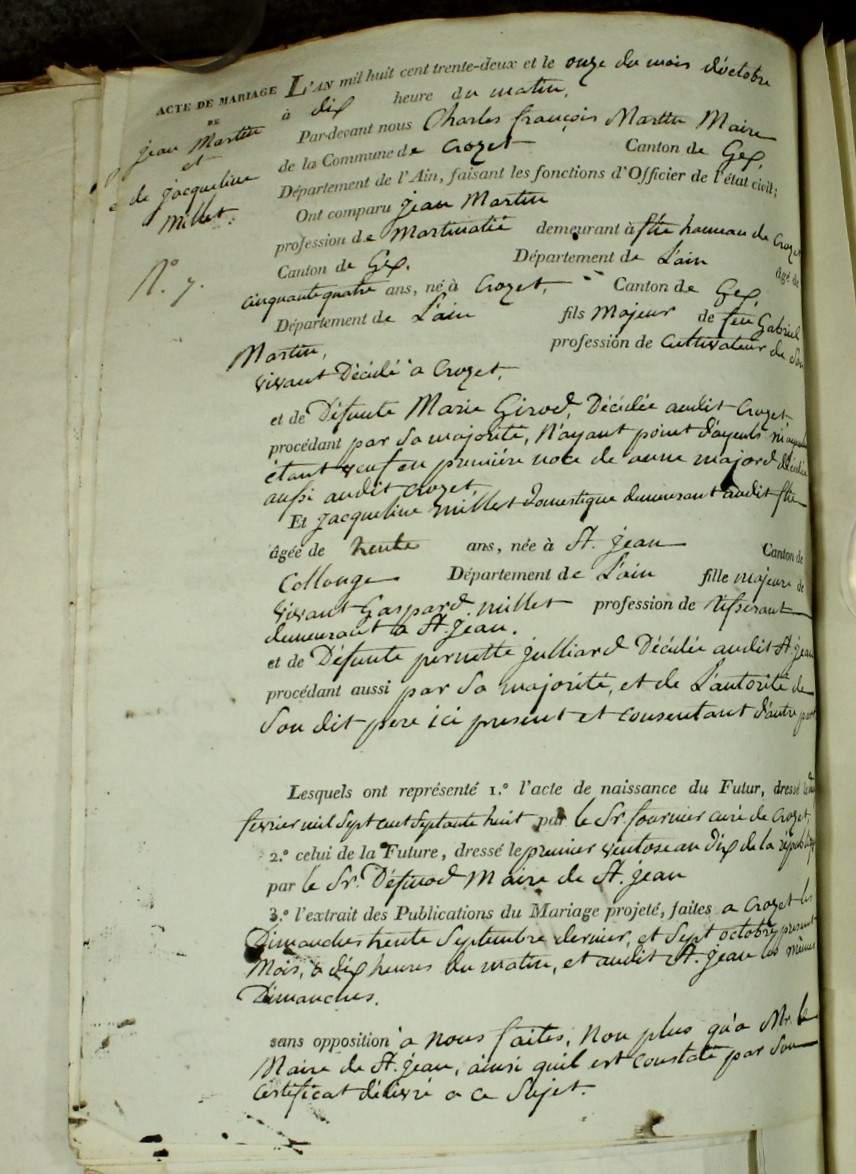 ACTE DE MARIAGE
DE
jean Martin
et
de jacqueline
Millet.
N.° 7.
L'AN mil huit cent trente-deux et le onze du mois d'octobre
à dix heure du matin,
Par-devant nous Charles françois Martin Maire
de la Commune de Crozet Canton de Gex,
Département de l'Ain, faisant les fonctions d'Officier de l'état civil;
Ont comparu jean Martin
profession de demeurant à hameau de Crozet
Canton de Gex. Département de L'ain âgé de
cinquante quatre ans, né à Crozet, Canton de Gex,
Département de L'ain fils Majeur de feu Gabriel
Martin, profession de Cultivateur de Son
vivant Décédé a Crozet,
et de Défunte Marie Girod, Décédée audit Crozet
procédant par Sa majorité, N'ayant point d'ayeuls
étant veuf en premiére noce de majord décédée
aussi audit Crozet
Et jacqueline Millet domestique demeurant audit
âgée de trente ans, née à St. jean Canton de
Collonge Département de L'ain fille majeure de
vivant Gaspard Millet profession de tisserant
demeurant a St. jean.
et de Défunte pernette julliard Décédée audit St. jean
procédant aussi par Sa majorité, et de L'autorité de
Son dit pere ici present et consentant d'autre part
Lesquels ont représenté 1.° l'acte de naissance du Futur, dressé
fevrier mil Sept cent Septante huit par le Sr. fournier curé de Crozet,
2.° celui de la Future, dressé le premier ventose an dix de la
par le Sr. Maire de St. jean
3.° l'extrait des Publications du Mariage projeté, faites a Crozet les
Dimanches trente Septembre dernier, et Sept octobre present
Mois, à dix heures du matin, et audit St. jean les mêmes
Dimanches.
sans opposition à nous faites, Non plus qu'a Mr. le
Maire de St. jean, ainsi qu'il est constaté par Son
Certificat délivré a ce Sujet.